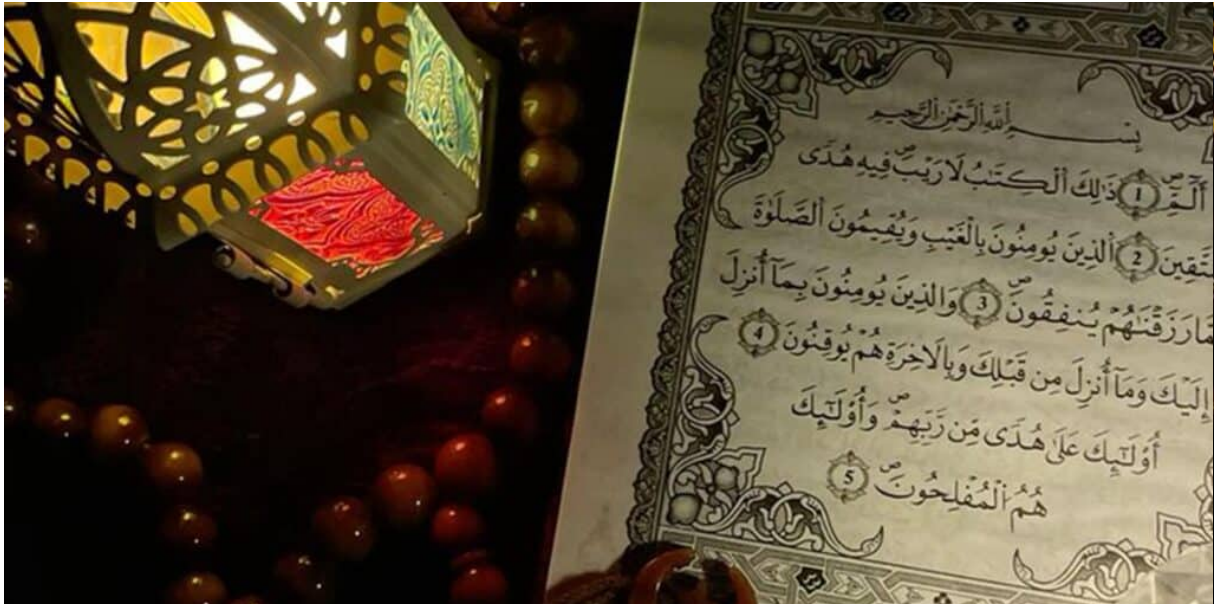 بِسْمِ اللَّهِ الرَّحْمَٰنِ الرَّحِيمِ
أَلَٓمِّٓۖ 1 ذَٰلِكَ اَ۬لْكِتَٰبُ لَا رَيْبَۖ فِيهِ هُدٗى
تَّقِينَ 2 اَ۬لذِينَ يُومِنُونَ بِالْغَيْبِ وَيُقِيمُونَ اَ۬لصَّلَوٰةَ
مَّا رَزَقْنَٰهُمْ يُنفِقُونَۖ 3 وَالذِينَ يُومِنُونَ بِمَآ أُنزِلَ
إِلَيْكَ وَمَآ أُنزِلَ مِن قَبْلِكَ وَبِالَاخِرَةِ هُمْ يُوقِنُونَ 4
أُوْلَٰٓئِكَ عَلَىٰ هُدٗى مِّن رَّبِّهِمْۖ وَأُوْلَٰٓئِكَ
هُمُ اُ۬لْمُفْلِحُونَۖ 5